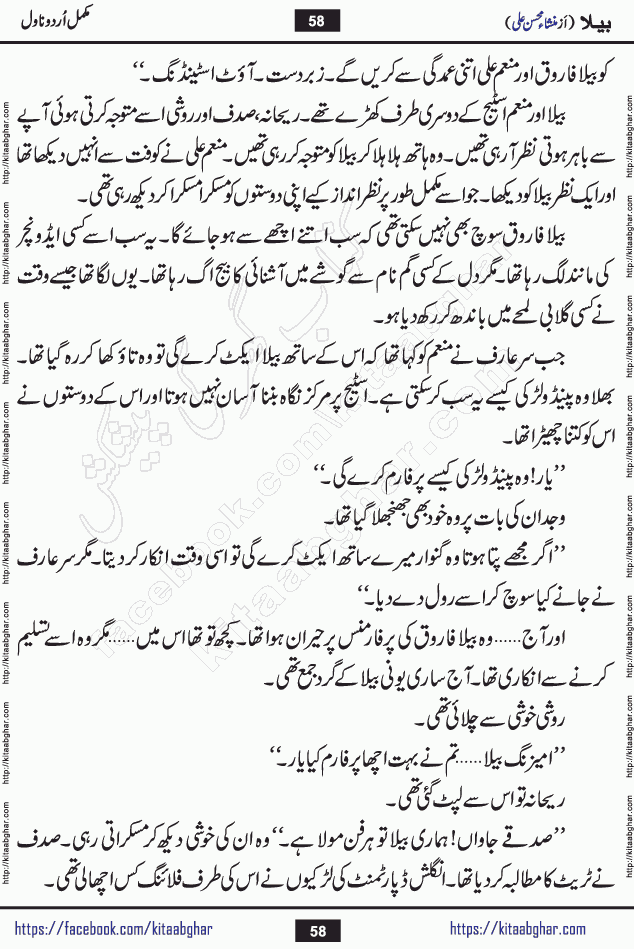 بیلا (از منشاء محسن علی) 58 مکمل اُردو ناول
کو بیلا فاروق اور منعم علی اتنی عمدگی سے کریں گے۔ زبردست۔ آؤٹ اسٹینڈنگ۔‘‘
بیلا اور منعم اسٹیج کے دوسری طرف کھڑے تھے۔ ریحانہ، صدف اور روشی اسے متوجہ کرتی ہوئی آپے
سے باہر ہوتی نظر آ رہی تھیں۔ وہ ہاتھ ہلا ہلا کر بیلا کو متوجہ کر رہی تھیں۔ منعم علی نے کوفت سے انہیں دیکھا تھا
اور ایک نظر بیلا کو دیکھا۔ جو اسے مکمل طور پر نظر انداز کیے اپنی دوستوں کو مسکرا مسکرا کر دیکھ رہی تھی۔
بیلا فاروق سوچ بھی نہیں سکتی تھی کہ سب اتنے اچھے سے ہو جائے گا۔ یہ سب اسے کسی ایڈونچر
کی مانند لگ رہا تھا۔ مگر دل کے کسی گم نام سے گوشے میں آشنائی کا بیج اگ رہا تھا۔ یوں لگا تھا جیسے وقت
نے کسی گلابی لمحے میں باندھ کر رکھ دیا ہو۔
جب سر عارف نے منعم کو کہا تھا کہ اس کے ساتھ بیلا ایکٹ کرے گی تو وہ تاؤ کھا کر رہ گیا تھا۔
بھلا وہ پینڈو لڑکی کیسے یہ سب کر سکتی ہے۔ اسٹیج پر مرکز نگاہ بننا آسان نہیں ہوتا اور اس کے دوستوں نے
اس کو کتنا چھیڑا تھا۔
’’یار! وہ پینڈو لڑکی کیسے پرفارم کرے گی۔‘‘
وجدان کی بات پر وہ خود بھی جھنجھلا گیا تھا۔
’’اگر مجھے پتا ہوتا وہ گنوار میرے ساتھ ایکٹ کرے گی تو اسی وقت انکار کر دیتا۔ مگر سر عارف
نے جانے کیا سوچ کر اسے رول دے دیا۔‘‘
اور آج...... وہ بیلا فاروق کی پرفارمنس پر حیران ہوا تھا۔ کچھ تو تھا اس میں..... مگر وہ اسے تسلیم
کرنے سے انکاری تھا۔ آج ساری یونی بیلا کے گرد جمع تھی۔
روشی خوشی سے چلائی تھی۔
’’امیزنگ بیلا...... تم نے بہت اچھا پرفارم کیا یار۔‘‘
ریحانہ تو اس سے لپٹ گئی تھی۔
’’صدقے جاواں! ہماری بیلا تو ہر فن مولا ہے۔‘‘ وہ ان کی خوشی دیکھ کر مسکراتی رہی۔ صدف
نے ٹریٹ کا مطالبہ کر دیا تھا۔ انگلش ڈپارٹمنٹ کی لڑکیوں نے اس کی طرف فلائنگ کس اچھالی تھی۔
https://facebook.com/kitaabghar 58 https://kitaabghar.com
http://kitaabghar.com http://kitaabghar.com http://kitaabghar.com http://kitaabghar.com http://kitaabghar.com http://kitaabghar.com http://kitaabghar.com http://kitaabghar.com
http://kitaabghar.com http://kitaabghar.com http://kitaabghar.com http://kitaabghar.com http://kitaabghar.com http://kitaabghar.com http://kitaabghar.com http://kitaabghar.com
کتاب گھر کی پیشکش
facebook.com/kitaabghar
kitaabghar.com